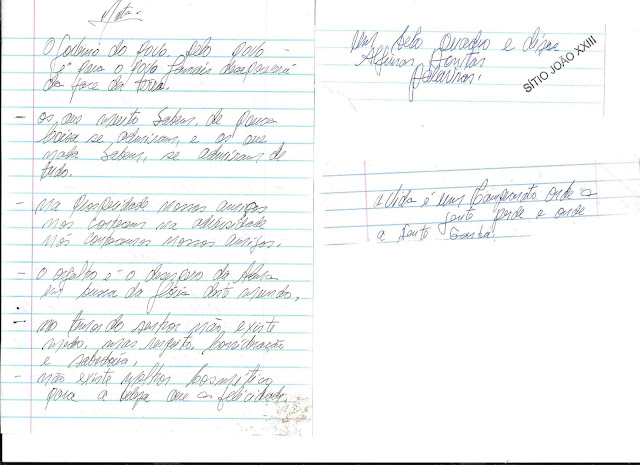 Nota:
O Governo do povo, pelo povo -
e para o povo jamais desaparecerá
da face da terra.
- os que muito sabem, de pouca
coisa se admiram, e os que
nada sabem, se admiram de
tudo.
- na prosperidade nossos amigos
nos conhecem na adversidade
nós conhecemos nossos amigos.
- o orgulho é o desespero da alma
em busca da glória deste mundo.
- no temor do senhor não existe
medo, mas respeito, consideração
e sabedoria.
- não existe melhor cosmético
para a beleza que a felicidade.
um belo quadro e disse
Algumas
palavras.
SÍTIO JOÃO XXIII
a vida é um Campeonato onde a
gente perde e onde
a gente Ganha.